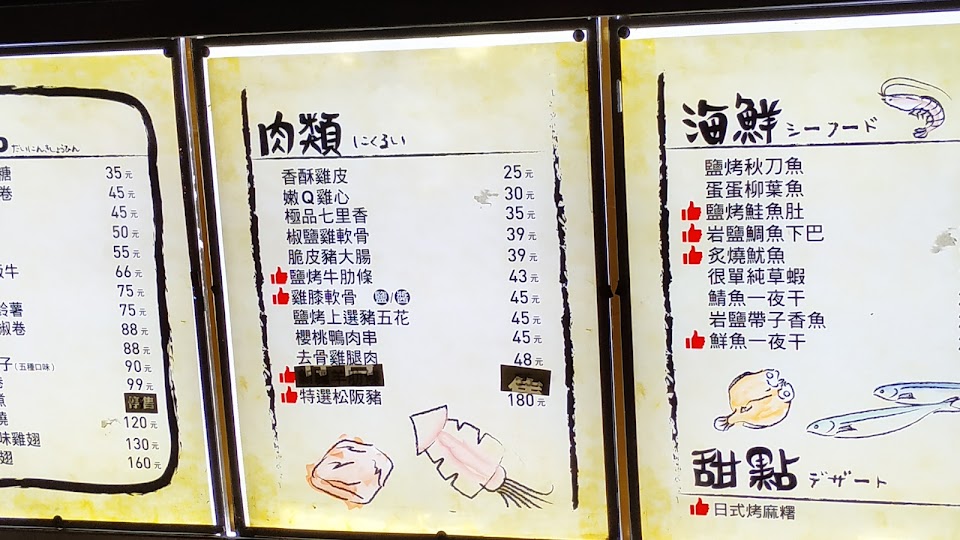 だいにんきしょうひん
糖 35元
卷 45元
45元
50元
55元
牛 66元
75元
薯 75元
椒卷 88元
88元
子(五種口味) 90元
99元
停售
燒 120元
味雞翅 130元
翅 160元
肉類 にくるい
香酥雞皮 25元
嫩Q雞心 30元
極品七里香 35元
椒鹽雞軟骨 39元
脆皮豬大腸 39元
鹽烤牛肋條 43元
雞膝軟骨 鹽/醬 45元
鹽烤上選豬五花 45元
櫻桃鴨肉串 45元
去骨雞腿肉 48元
售
特選松阪豬 180元
海鮮 シーフード
鹽烤秋刀魚
蛋蛋柳葉魚
鹽烤鮭魚肚
岩鹽鯛魚下巴
炙燒魷魚
很單純草蝦
鯖魚一夜干
岩鹽帶子香魚
鮮魚一夜干
甜點 デザート
日式烤麻糬